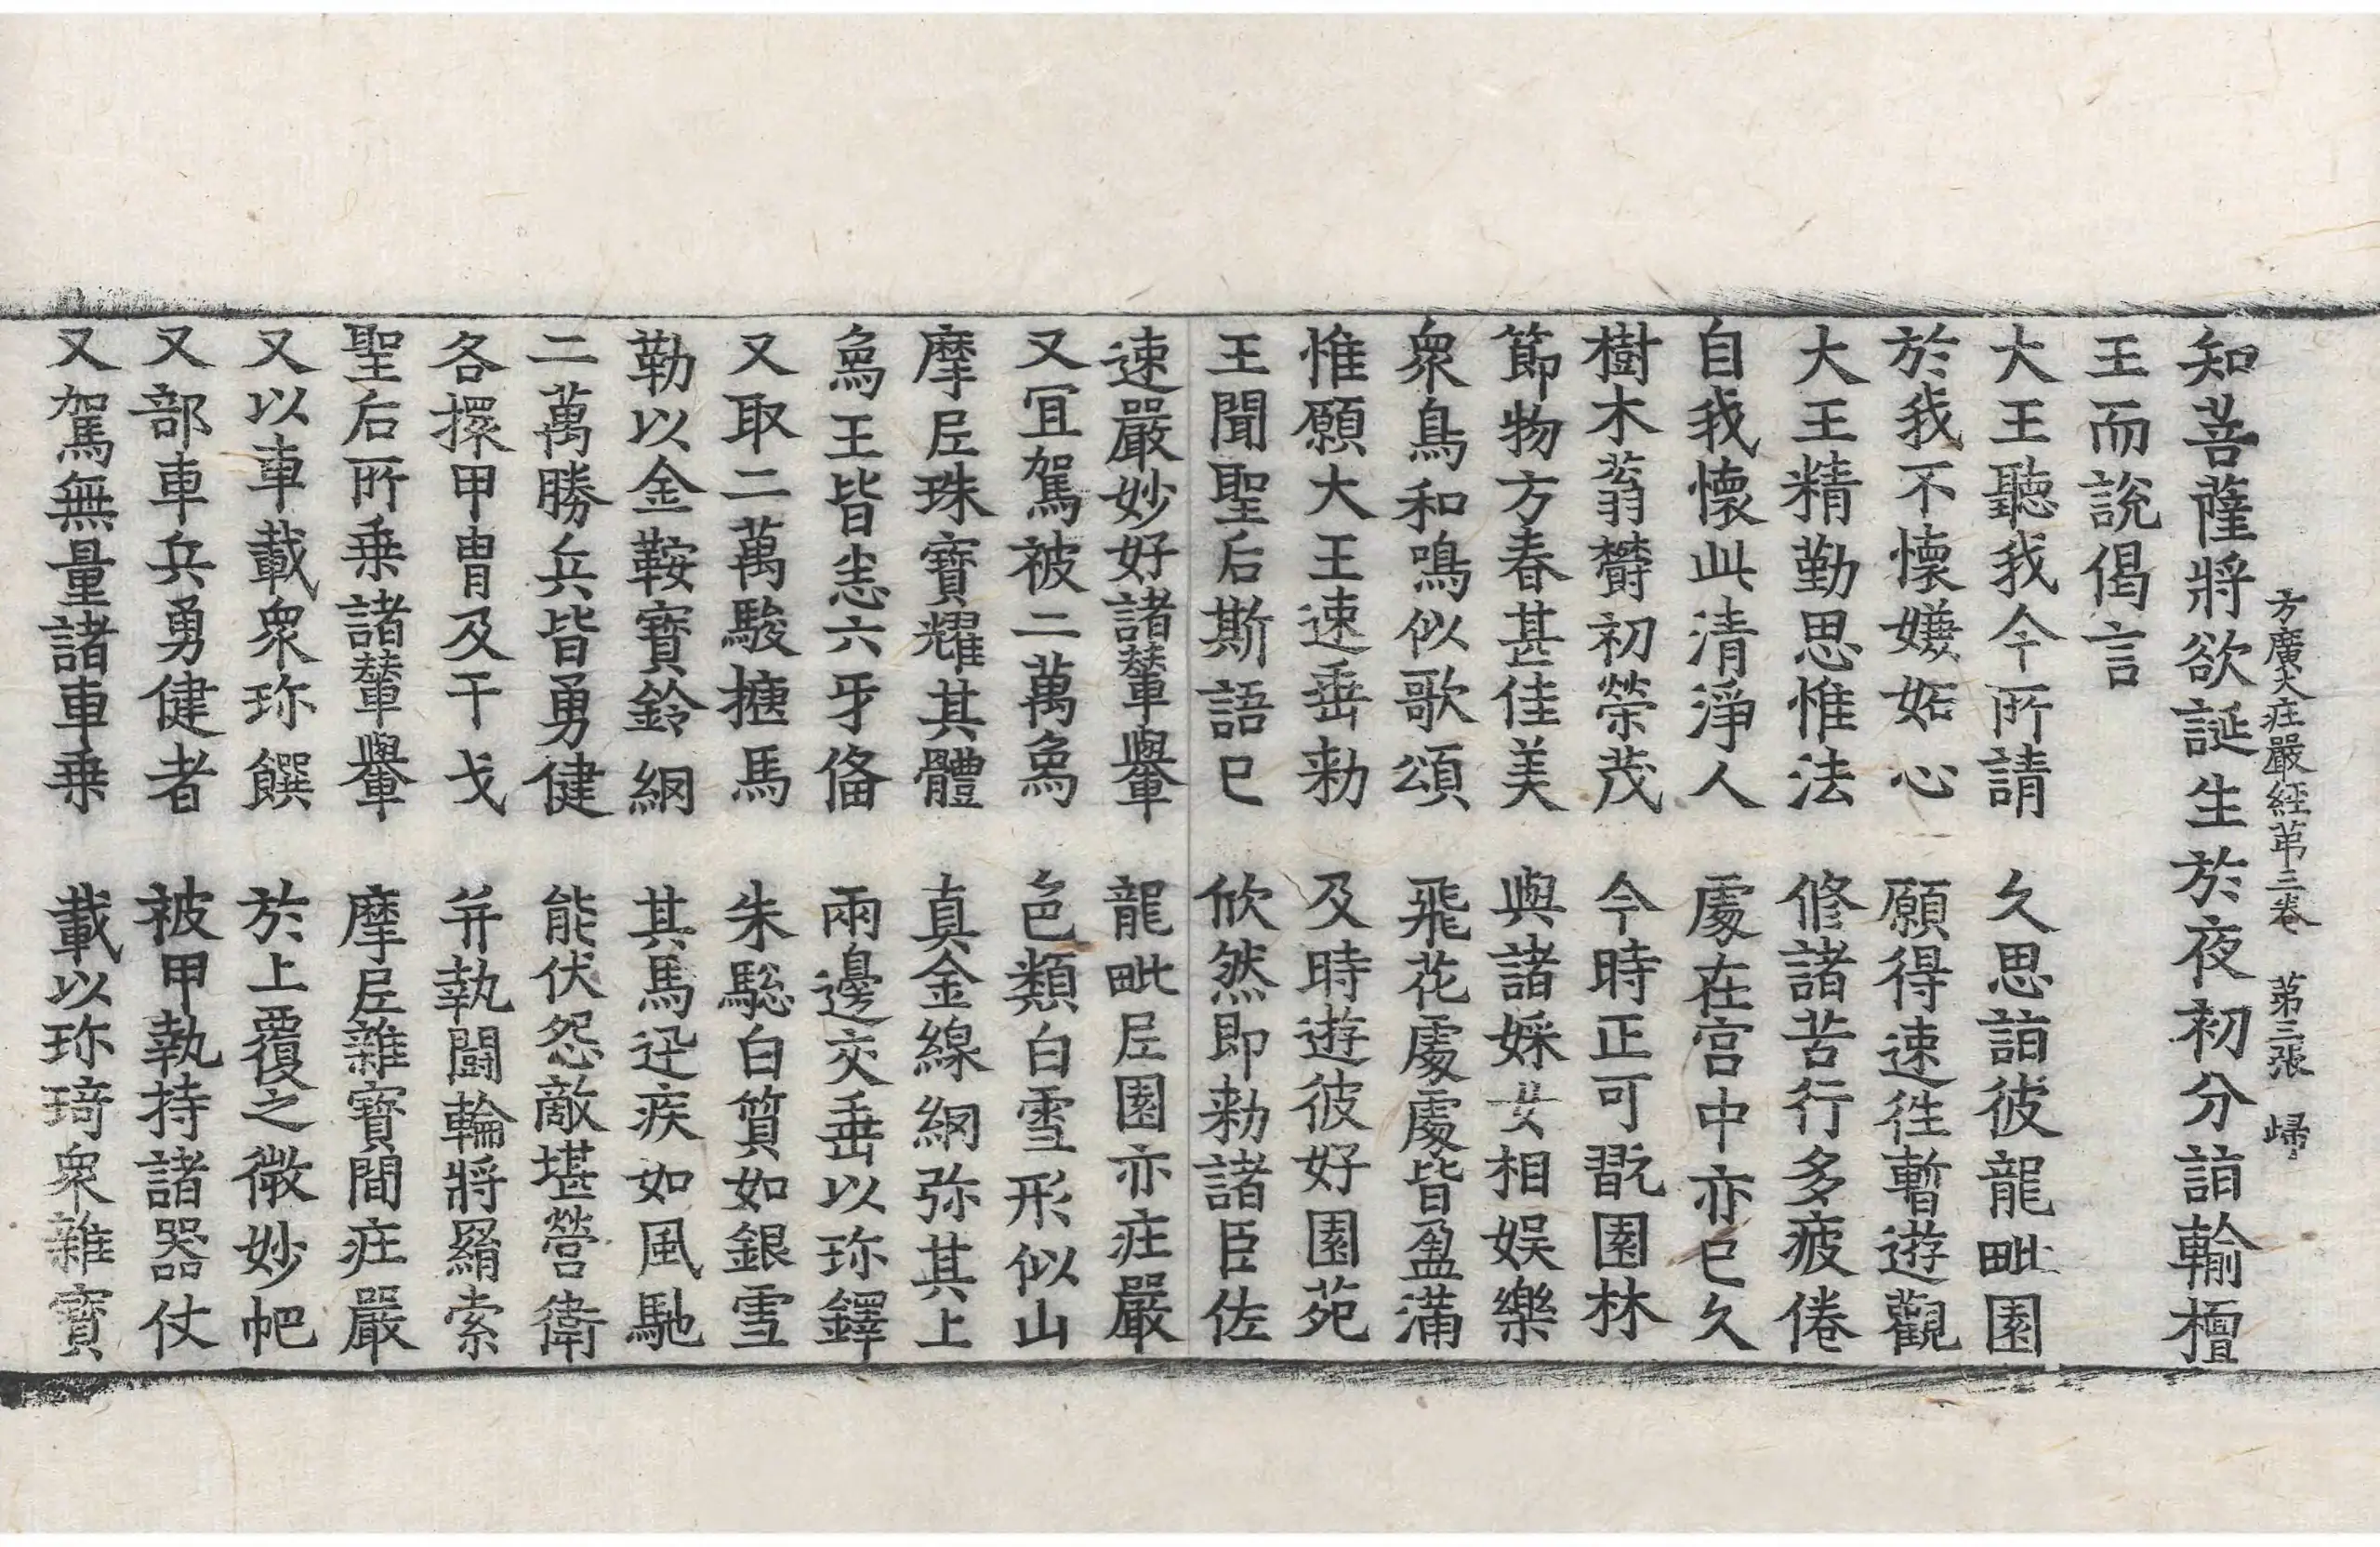 方廣大庄嚴經苐三卷 苐三張 歸
知菩薩將欲誕生於夜初分詣輸檀
王而說偈言
大王聽我今所請 久思詣彼龍毗園
於我不懷嫌妬心 願得速徃暫遊觀
大王精勤思惟法 修諸苦行多疲倦
自我懷此清淨人 處在宮中亦已久
樹木蓊欝初榮茂 今時正可翫園林
節物方春甚佳美 與諸婇女相娛樂
衆鳥和鳴似歌頌 飛花處處皆盈滿
惟願大王速垂勑 及時遊彼好園苑
王聞聖后斯語已 欣然即勑諸臣佐
速嚴妙好諸輦轝 龍毗𡰱園亦庄嚴
又冝駕被二萬𤉢 色類白雪形似山
摩𡰱珠寶耀其體 真金線網弥其上
𤉢王皆悉六牙俻 兩邊交垂以珎鐸
又取二萬駿𢵧馬 朱騣白質如銀雪
勒以金鞍寶鈴網 其馬迅疾如風馳
二萬勝兵皆勇健 能伏怨敵堪營衛
各擐甲冑及干戈 并執鬪輪將羂索
聖后所乗諸輦轝 摩𡰱雜寶間庄嚴
又以車載衆珎饌 於上覆之微妙帊
又部車兵勇健者 被甲執持諸器仗
又駕無量諸車乗 載以珎琦衆雜寶